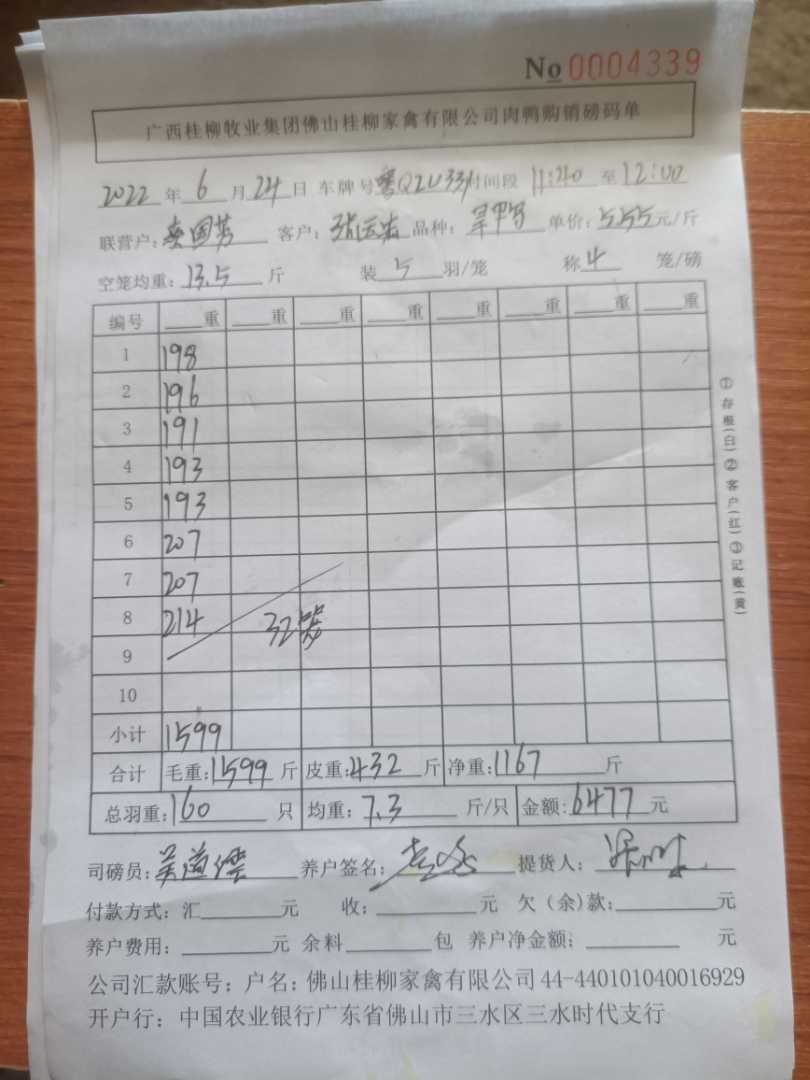 No 0004339
广西桂柳牧业集团佛山桂柳家禽有限公司肉鸭购销磅码单
2022 年 6 月 24 日 车牌号 粤Q2U331 时间段 11:40 至 12:00
联营户: 国芳 客户: 张运 品种: 单价: 5.55 元/斤
空笼均重: 13.5 斤 装 5 羽/笼 称 4 笼/磅
编号 重 重 重 重 重 重 重 重
1 198
2 196
3 191
4 193
5 193
6 207
7 207
8 214 32笼
9
10
小计 1599
合计 毛重: 1599 斤 皮重: 432 斤 净重: 1167 斤
总羽重: 160 只 均重: 7.3 斤/只 金额: 6477 元
司磅员: 养户签名: 提货人:
付款方式: 汇 元 收: 元 欠(余)款: 元
养户费用: 元 余料 包 养户净金额: 元
公司汇款账号: 户名: 佛山桂柳家禽有限公司 44-440101040016929
开户行: 中国农业银行广东省佛山市三水区三水时代支行
①存根(白)②客户(红)③记账(黄)